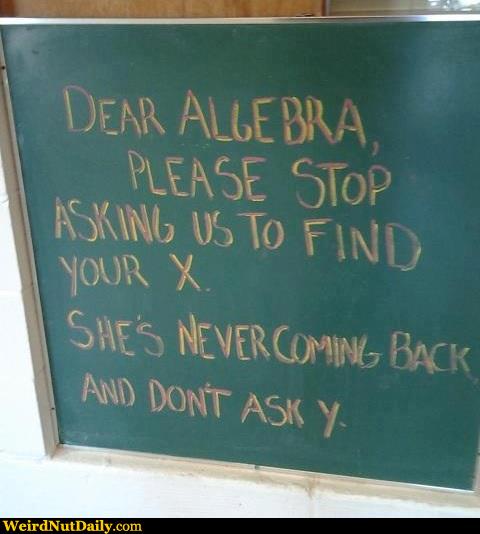 DEAR ALGEBRA,
PLEASE STOP
ASKING US TO FIND
YOUR X.
SHE'S NEVER COMING BACK,
AND DON'T ASK Y.
WeirdNutDaily.com